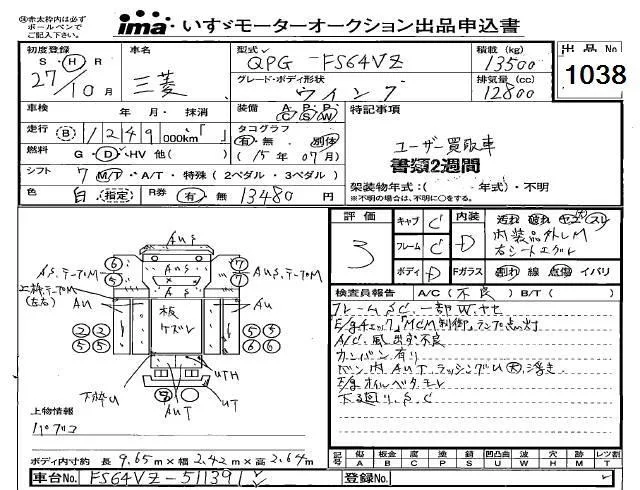 ※赤太枠内は必ずボールペンでご記入下さい。
ima いすゞモーターオークション出品申込書
初度登録 S・H・R 27/10月
車名 三菱
型式 QPG-FS64VZ
積載(kg) 13500
出品No 1038
グレード・ボディ形状 ウイング
排気量(cc) 12800
車検 年 月・抹消
装備 A/C P/S P/W
特記事項
走行 B 1249 000km「 」
タコグラフ 有・無 別体 (15年07月)
ユーザー買取車
書類2週間
燃料 G・D・HV 他( )
シフト 7 M/T・A/T・特殊(2ペダル・3ペダル)
架装物年式:( 年式)・不明
※不明の場合は、不明に○をする。
色 白 指定 R券 有・無 13480円
評価 3
キャブ C
フレーム C
ボディ D
内装 D
汚れ 破れ コゲ スレ
内装品外しM
右シートエグレ
Fガラス 割れ 線 点傷 イバリ
検査員報告 A/C(不良) B/T( )
フレームSC.一部W.サセ
E/gチェック,「MCM制御」ランプ点灯
A/C.風出ず不良
カンバン有り
バン内AUT.ラッシングU大.浮き.
E/gオイルベタ.モレ
下廻り.S.C
AuS
AuS
AS
AS.テープM
AuS.テープM
上枠.テープM
(左右)
Au
Au
6
5
7
7
2 2
5 5
5 5
6 6
板ケズレ
UTH
UT
下枠U
AUT
上物情報
パブコ
ボディ内寸約 長 9.65m×幅 2.42m×高 2.64m
車台No. FS64VZ-511391
登録No.
記号 傷 A 板金 B 腐 C 塗 P 錆 S 凹凸曲 U 波 W 穴 H 跡 M レツ割 T